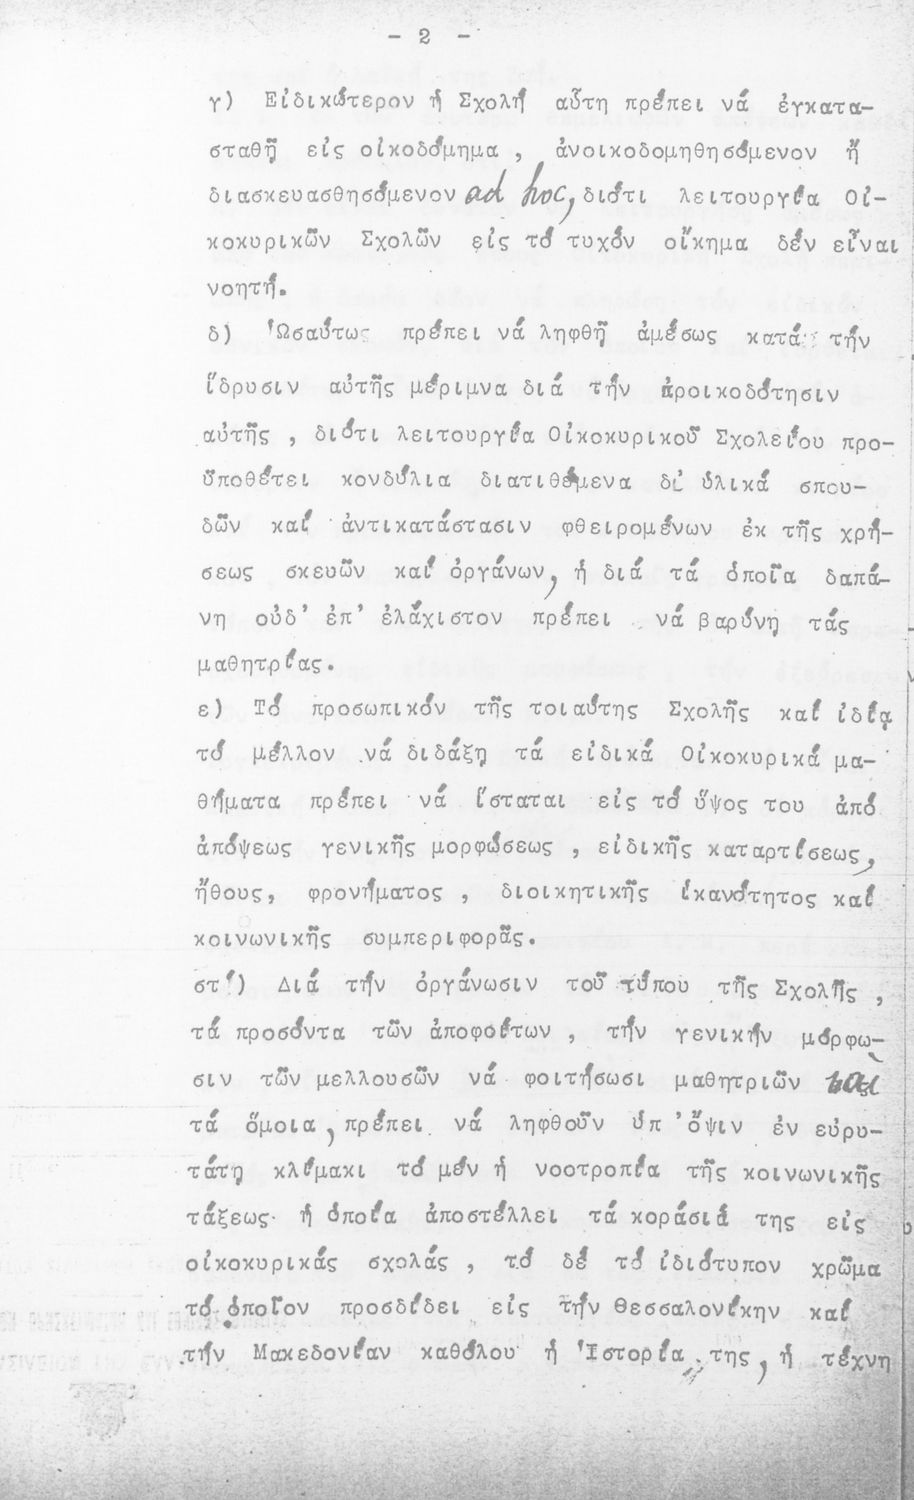 - 2 -
γ) Εἰδικώτερον ἡ Σχολή αὕτη πρέπει νά ἐγκατα-
σταθῇ εἰς οἰκοδόμημα , ἀνοικοδομηθησόμενον ἤ
διασκευασθησόμενον ad hoc, διότι λειτουργία Οἰ-
κοκυρικῶν Σχολῶν εἰς τό τυχόν οἴκημα δέν εἶναι
νοητή.
δ) Ὡσαύτως πρέπει νά ληφθῇ ἀμέσως κατά τήν
ἵδρυσιν αὐτῆς μέριμνα διά τήν ἀροικοδότησιν
αὐτῆς , διότι λειτουργία Οἰκοκυρικοῦ Σχολείου προ-
ϋποθέτει κονδύλια διατιθέμενα δι' ὑλικά σπου-
δῶν καί ἀντικατάστασιν φθειρομένων ἐκ τῆς χρή-
σεως σκευῶν καί ὀργάνων, ἡ διά τά ὁποῖα δαπά-
νη οὐδ' ἐπ' ἐλάχιστον πρέπει νά βαρύνῃ τάς
μαθητρίας.
ε) Τό προσωπικόν τῆς τοιαύτης Σχολῆς καί ἰδίᾳ
τό μέλλον νά διδάξῃ τά εἰδικά Οἰκοκυρικά μα-
θήματα πρέπει νά ἵσταται εἰς τό ὕψος του ἀπό
ἀπόψεως γενικῆς μορφώσεως , εἰδικῆς καταρτίσεως,
ἤθους, φρονήματος , διοικητικῆς ἱκανότητος καί
κοινωνικῆς συμπεριφορᾶς.
στ') Διά τήν ὀργάνωσιν τοῦ τύπου τῆς Σχολῆς ,
τά προσόντα τῶν ἀποφοίτων , τήν γενικήν μόρφω-
σιν τῶν μελλουσῶν νά φοιτήσωσι μαθητριῶν καί
τά ὅμοια, πρέπει νά ληφθοῦν ὑπ' ὄψιν ἐν εὐρυ-
τάτῃ κλίμακι τό μέν ἡ νοοτροπία τῆς κοινωνικῆς
τάξεως ἡ ὁποία ἀποστέλλει τά κοράσιά της εἰς
οἰκοκυρικάς σχολάς , τό δέ τό ἰδιότυπον χρῶμα
τό ὁποῖον προσδίδει εἰς τήν Θεσσαλονίκην καί
τήν Μακεδονίαν καθόλου ἡ Ἱστορία της, ἡ τέχνη